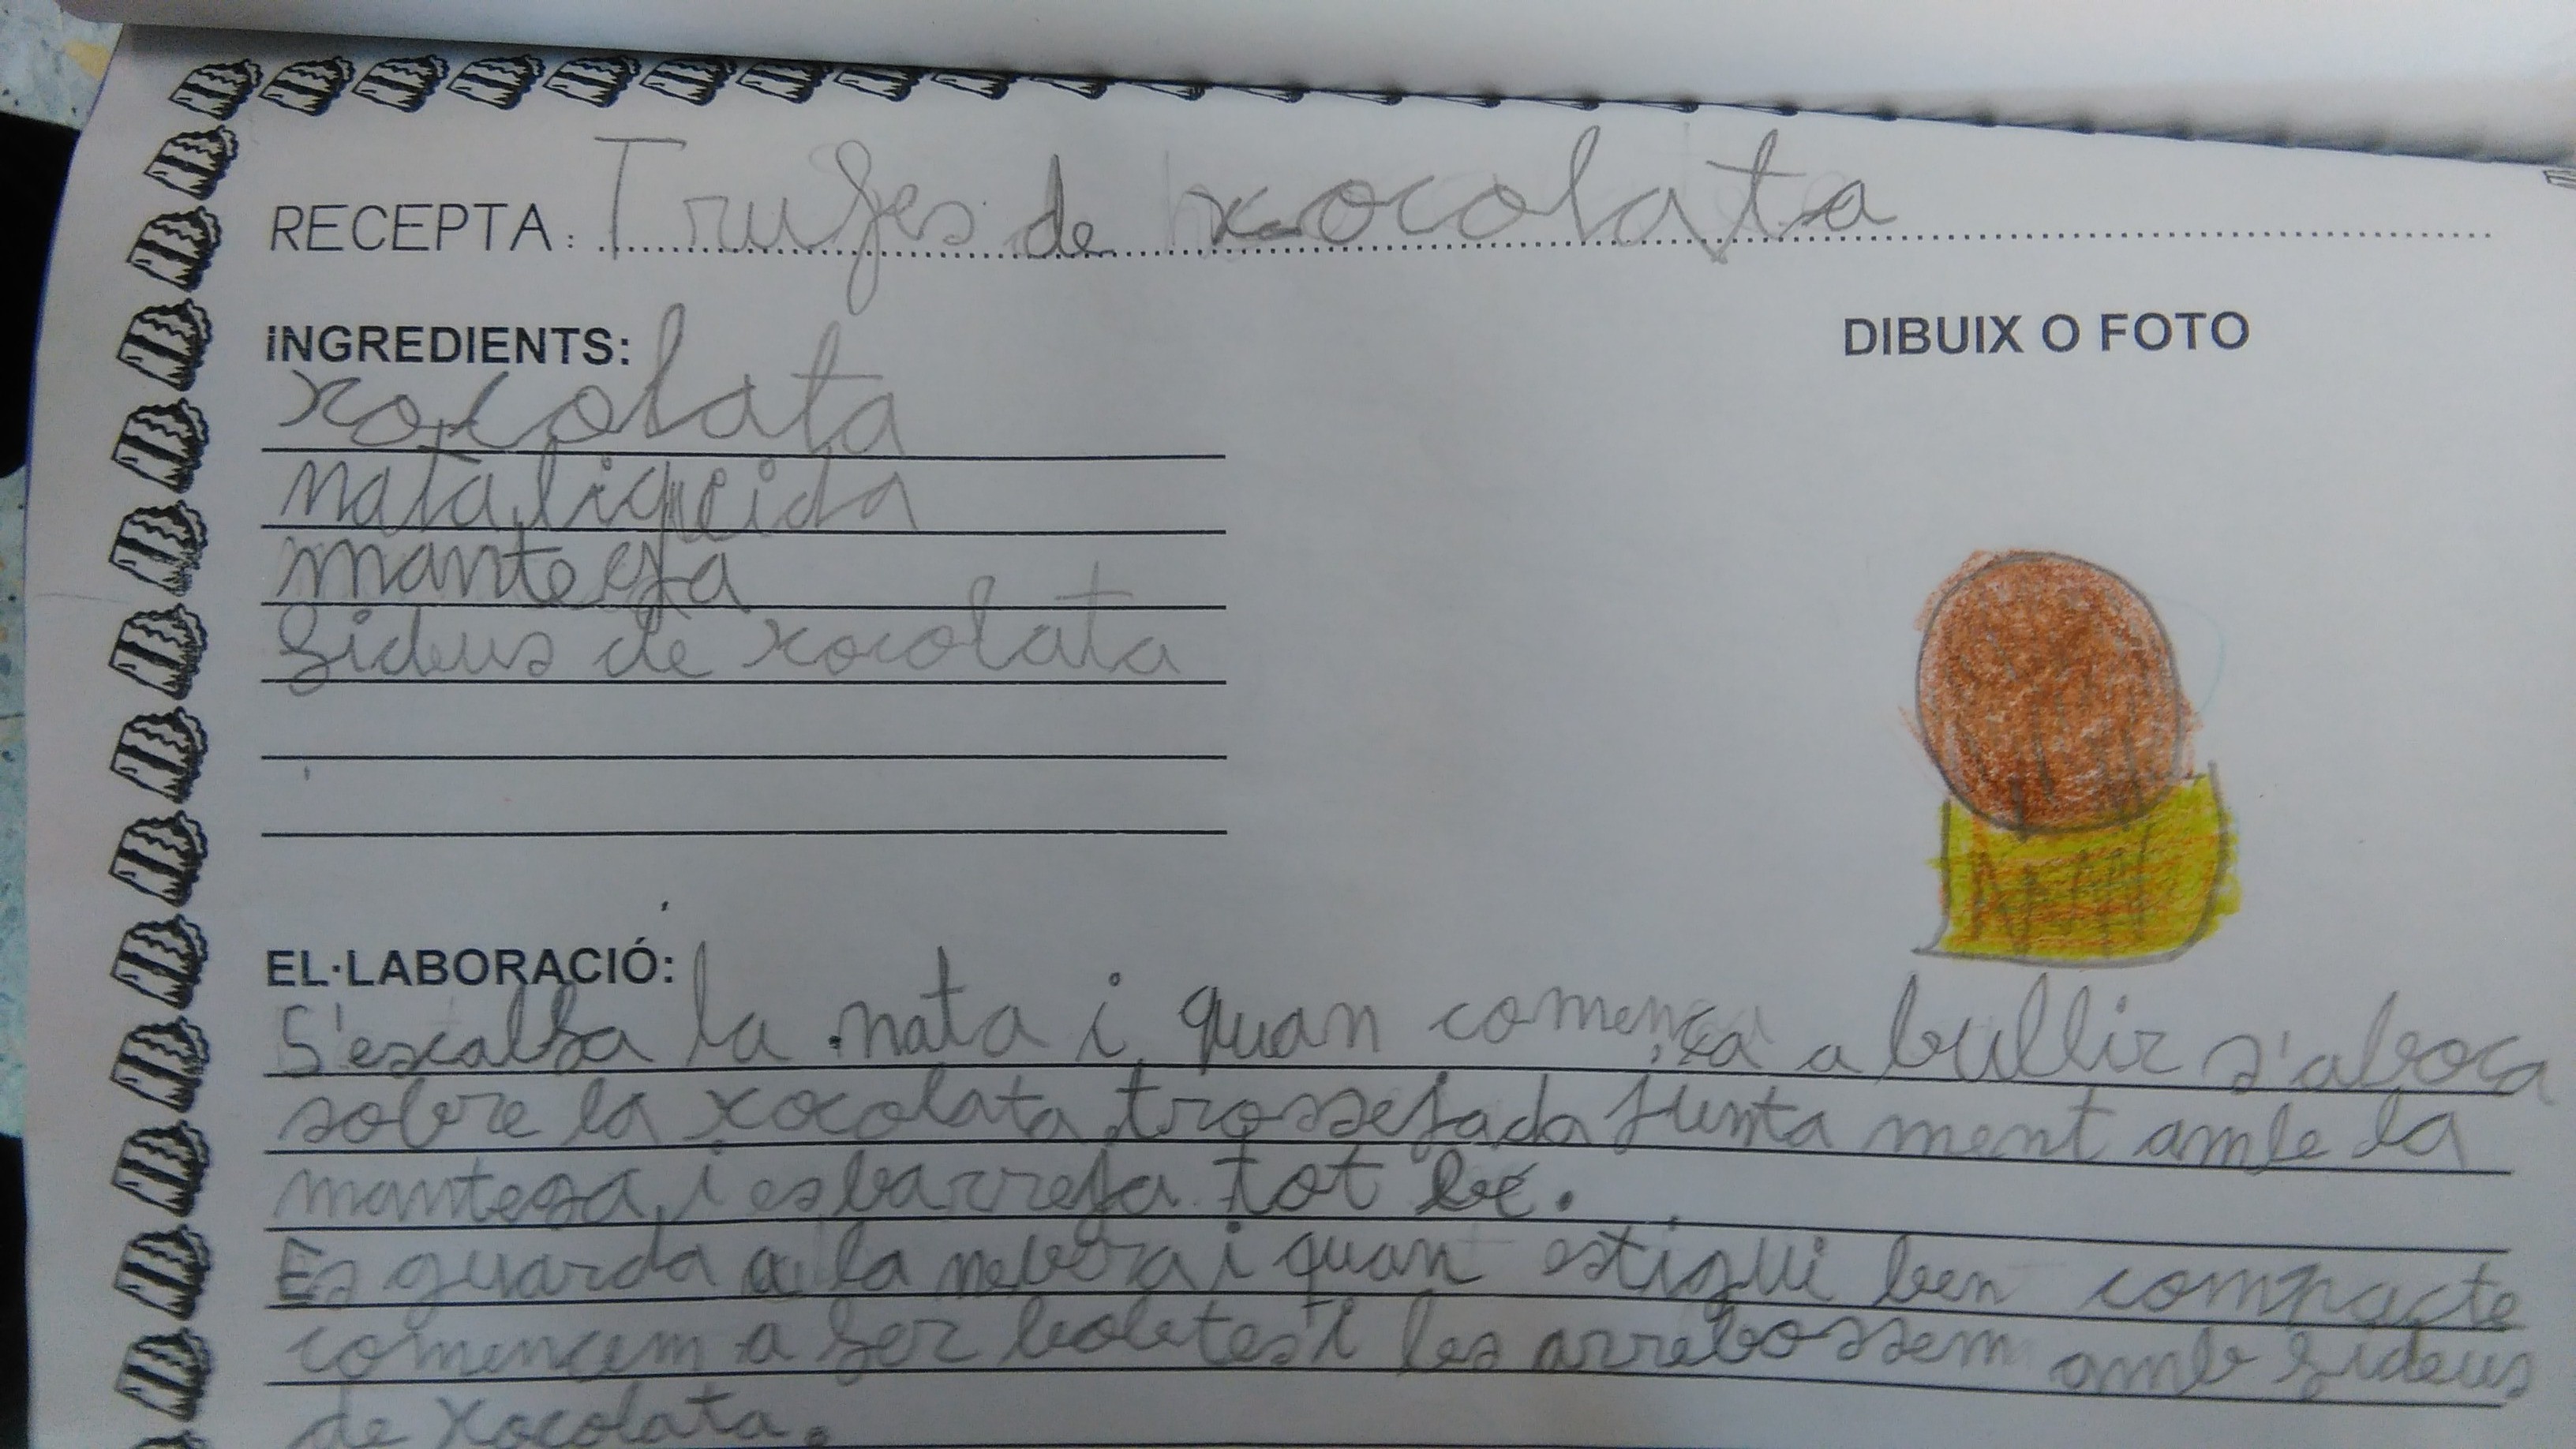 RECEPTA: Trufes de xocolata
iNGREDIENTS:
DIBUIX O FOTO
xocolata
nata liqueida
mantega
fideus de xocolata
EL·LABORACIÓ:
S'escalfa la nata i quan comença a bullir s'aboca
sobre la xocolata trossejada junta ment amb la
mantega i es barreja tot bé.
Es guarda a la nevera i quan estigui ben compacte
comencem a fer boletes i les arrebossem amb fideus
de xocolata.